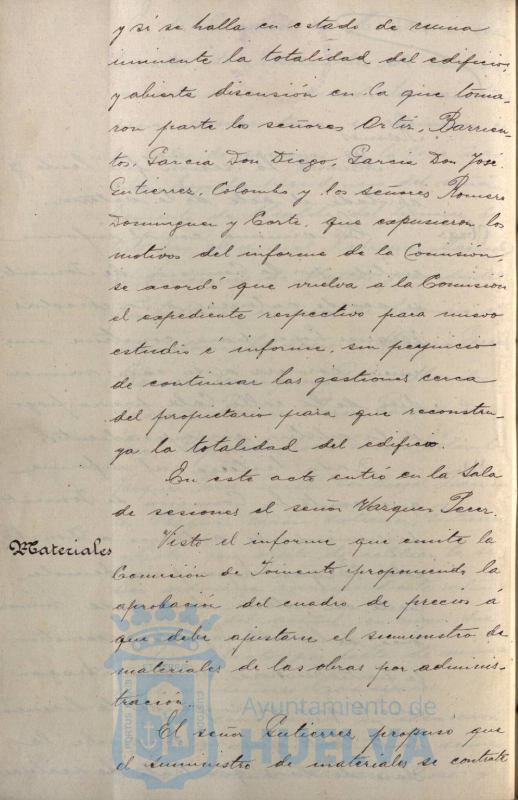 y si se halla en estado de ruina
inminente la totalidad del edificio,
y abierta discusión en la que toma-
ron parte los señores Ortiz, Barrien-
tos, Garcia Don Diego, Garcia Don José,
Gutierrez, Colombo y los señores Romero
Dominguez y Corte, que expusieron los
motivos del informe de la Comisión,
se acordó que vuelva a la Comisión
el expediente respectivo para nuevo
estudio é informe, sin perjuicio
de continuar las gestiones cerca
del propietario para que reconstru-
ya la totalidad del edificio.
En este acto entró en la Sala
de sesiones el señor Vazquez Perez.
Materiales
Visto el informe que emite la
Comisión de Fomento proponiendo la
aprobación del cuadro de precios á
que debe ajustarse el suministro de
materiales de las obras por adminis-
tración.
El señor Gutierrez propuso que
el suministro de materiales se contrate
Ayuntamiento de
HUELVA